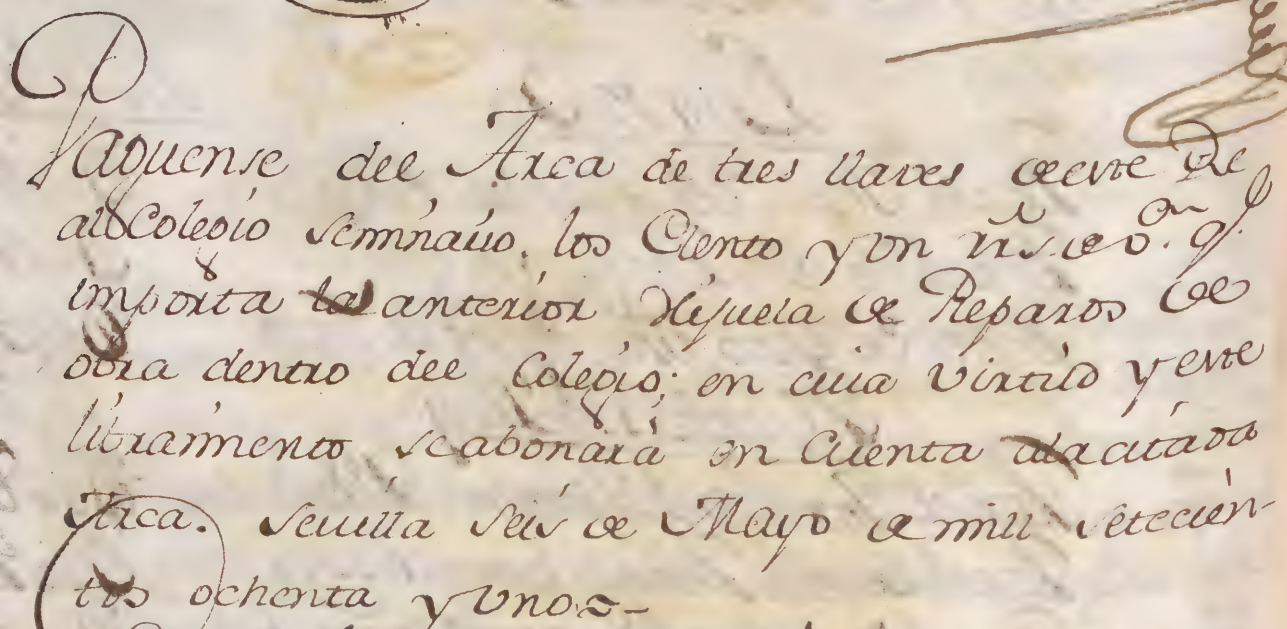 Paguense del Arca de tres llaves de este Re
al Colegio Seminario, los Ciento y un rrs. de von. qe.
importa la anterior Hijuela de Reparos de
obra dentro del Colegio; en cuia virtud y este
libramiento se abonará en Cuenta ala citada
Arca. Sevilla Seis de Mayo de mill setecien-
tos ochenta y uno=